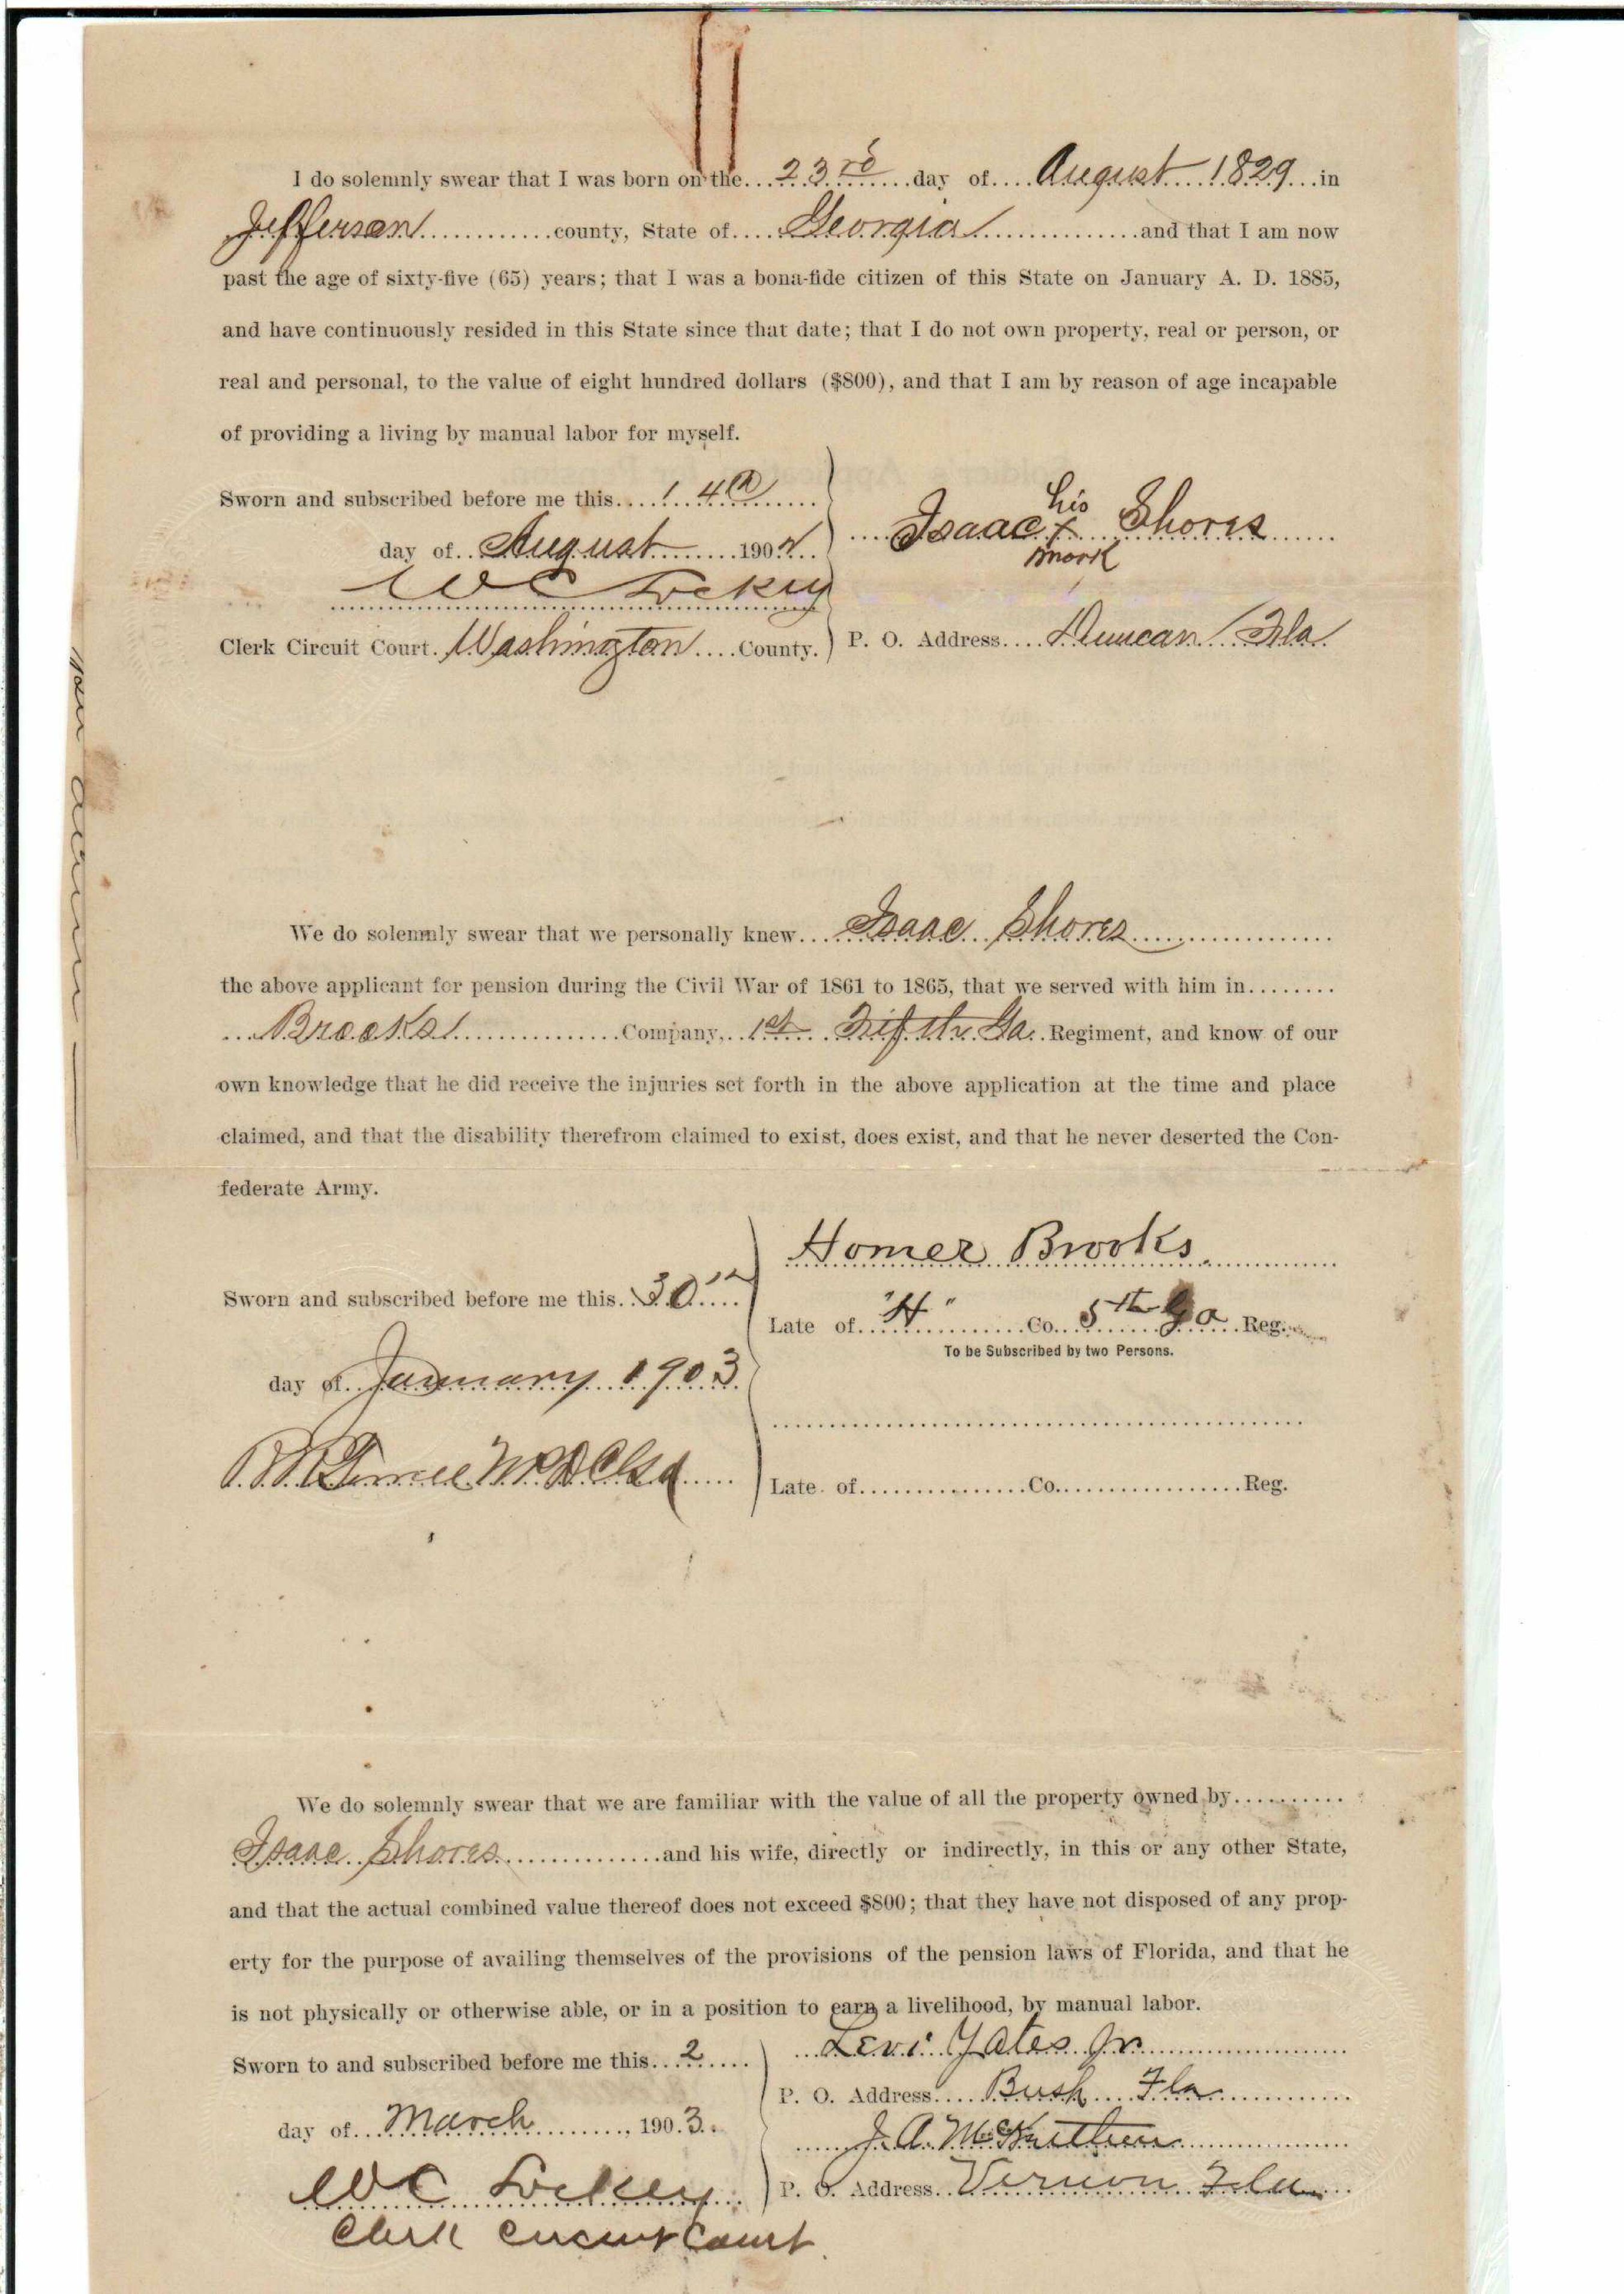 I do solemnly swear that I was born on the 23rd day of August 1829 in
Jefferson county, State of Georgia and that I am now
past the age of sixty-five (65) years; that I was a bona-fide citizen of this State on January A. D. 1885,
and have continuously resided in this State since that date; that I do not own property, real or person, or
real and personal, to the value of eight hundred dollars ($800), and that I am by reason of age incapable
of providing a living by manual labor for myself.
Sworn and subscribed before me this 14th
day of August 1902
Isaac his x mark Shores
W C Lockey
Clerk Circuit Court Washington County.
P. O. Address Duncan Fla
We do solemnly swear that we personally knew Isaac Shores
the above applicant for pension during the Civil War of 1861 to 1865, that we served with him in
Brooks Company, 1st Fifth Ga. Regiment, and know of our
own knowledge that he did receive the injuries set forth in the above application at the time and place
claimed, and that the disability therefrom claimed to exist, does exist, and that he never deserted the Con-
federate Army.
Homer Brooks
Sworn and subscribed before me this 30th
Late of "H" Co. 5th Ga Reg.
To be Subscribed by two Persons.
day of January 1903
Late of Co. Reg.
We do solemnly swear that we are familiar with the value of all the property owned by
Isaac Shores and his wife, directly or indirectly, in this or any other State,
and that the actual combined value thereof does not exceed $800; that they have not disposed of any prop-
erty for the purpose of availing themselves of the provisions of the pension laws of Florida, and that he
is not physically or otherwise able, or in a position to earn a livelihood, by manual labor.
Sworn to and subscribed before me this 2
Levi Yates Jr
P. O. Address Bush Fla
day of March, 1903.
J. A.
W C Lockey
P. O. Address Vernon Fla
Clerk Circuit Court